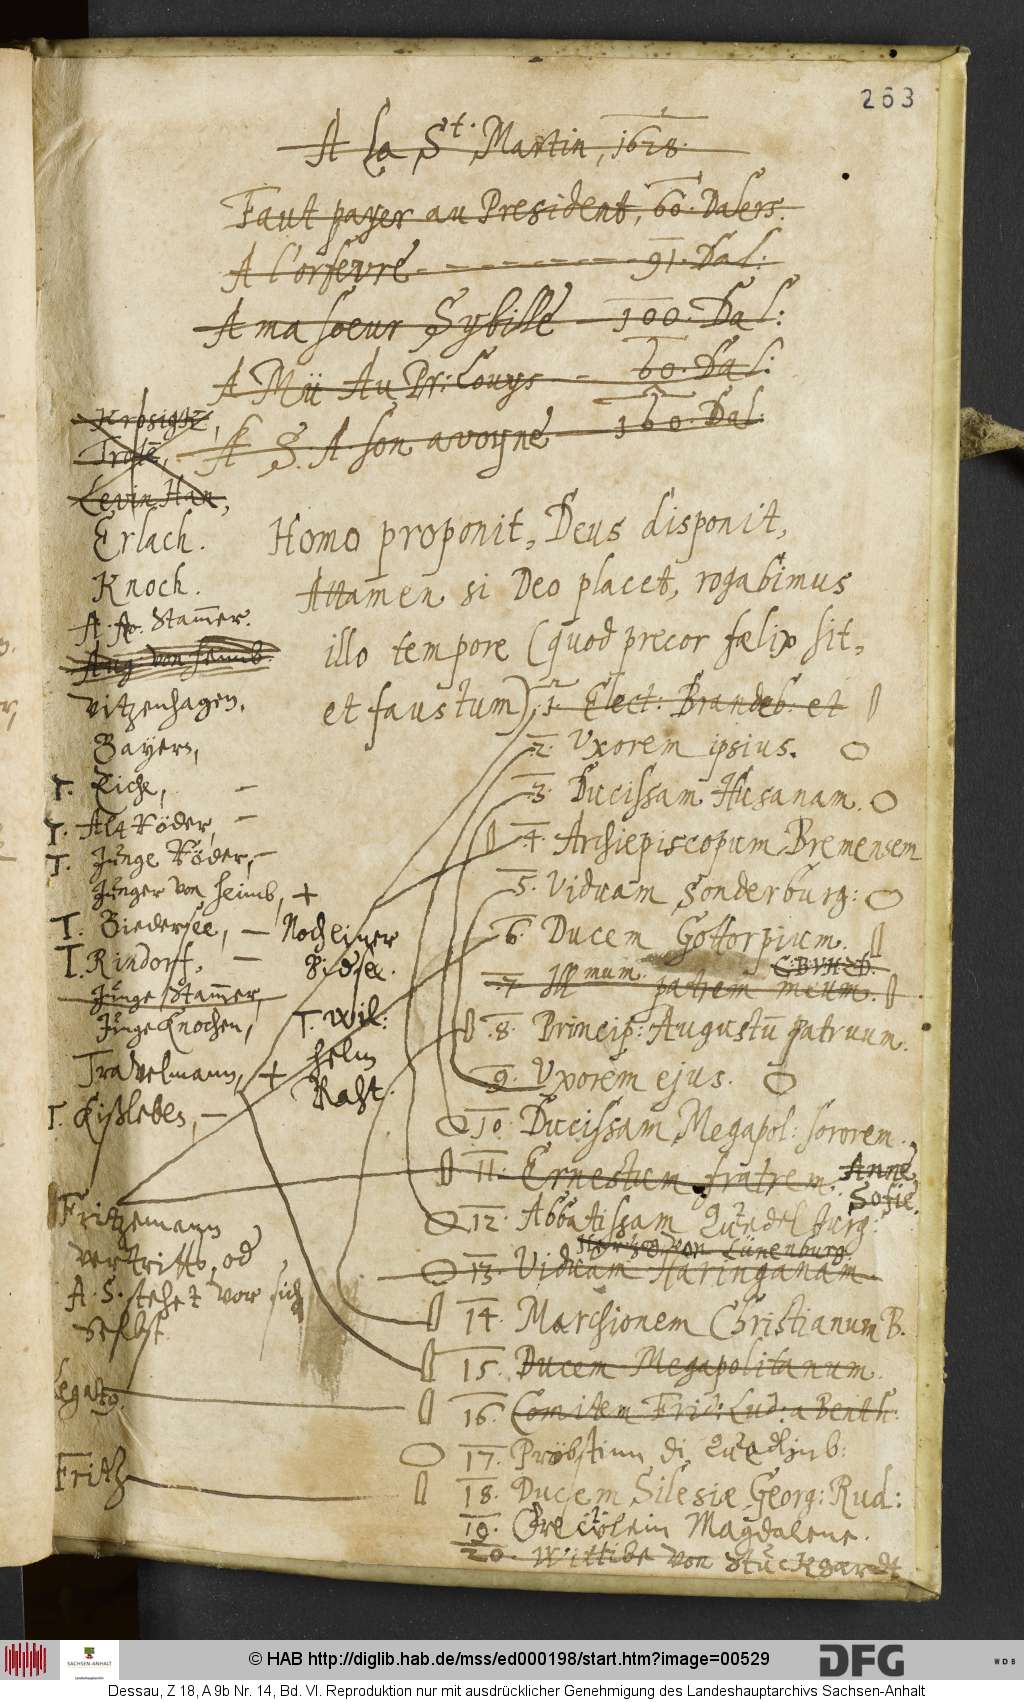 263
A la S.t Martin, 1628.
Faut payer au President, 60. Dalers.
A l'orfevre - - - - - - - - - 91. Dal:
A ma soeur Sybille - 100. Dal:
A Mü Au Pr: Louys - - 60. Dal:
A S. A son avoyne - 160. Dal.
Krosigk,
Trote,
Levin Han,
Erlach.
Knoch.
A. Stam̄er.
Aug: von heimb.
Vitzenhagen,
Bayern,
T. Eiche, -
T. Röder, -
T. Junge Röder, -
Junger von heimb, +
T. Biedersee, - Noch einer
T. Rindorf, -
Junge Stam̄er,
Junge Knochen, T. Wil:
helm
Rast.
Travelmann, +
T. Eißleben, -
Fritzemann
vertritts, od
A. S. stehet vor sich
selbst.
Fritz
Homo proponit, Deus disponit,
Attamen si Deo placet, rogabimus
illo tempore (quod precor fœlix sit,
et faustum) 1. Elect: Brandeb: et
2. Uxorem ipsius.
3. Ducissam Husanam.
4. Archiepiscopum Bremensem
5. Viduam Sonderburg:
6. Ducem Gottorpium.
7. Illmum. patrem meum.
8. Princip: Augustū patruum.
9. Uxorem ejus.
10. Ducissam Megapol: sororem.
11. Ernestum fratrem. Anne
Sofie.
12. Abbatissam Quedelburg:
Hertzog von Lünenburg.
13. Viduam Haringanam
14. Marchionem Christianum B.
15. Ducem Megapolitanum.
16. Comitem Frid: Lud: a Benth:
17. Pröbstinn di Quedlinb:
18. Ducem Silesiæ Georg: Rud:
19. Frewlein Magdalene.
20. Wittibe von Stuckgardt
© HAB http://diglib.hab.de/mss/ed000198/start.htm?image=00529
SACHSEN-ANHALT
DFG
WDB
Dessau, Z 18, A 9b Nr. 14, Bd. VI. Reproduktion nur mit ausdrücklicher Genehmigung des Landeshauptarchivs Sachsen-Anhalt